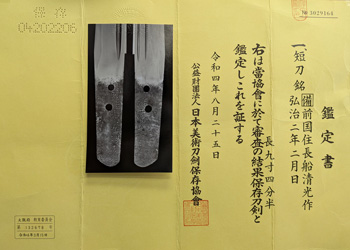 No 3029164
鑑定書
一、短刀 銘 備前国住長船清光作
弘治二年二月日
長九寸四分半
右は當協會に於て審査の結果保存刀剣と
鑑定しこれを証する
令和四年八月二十五日
公益財団法人日本美術刀剣保存協會
保存
04202206